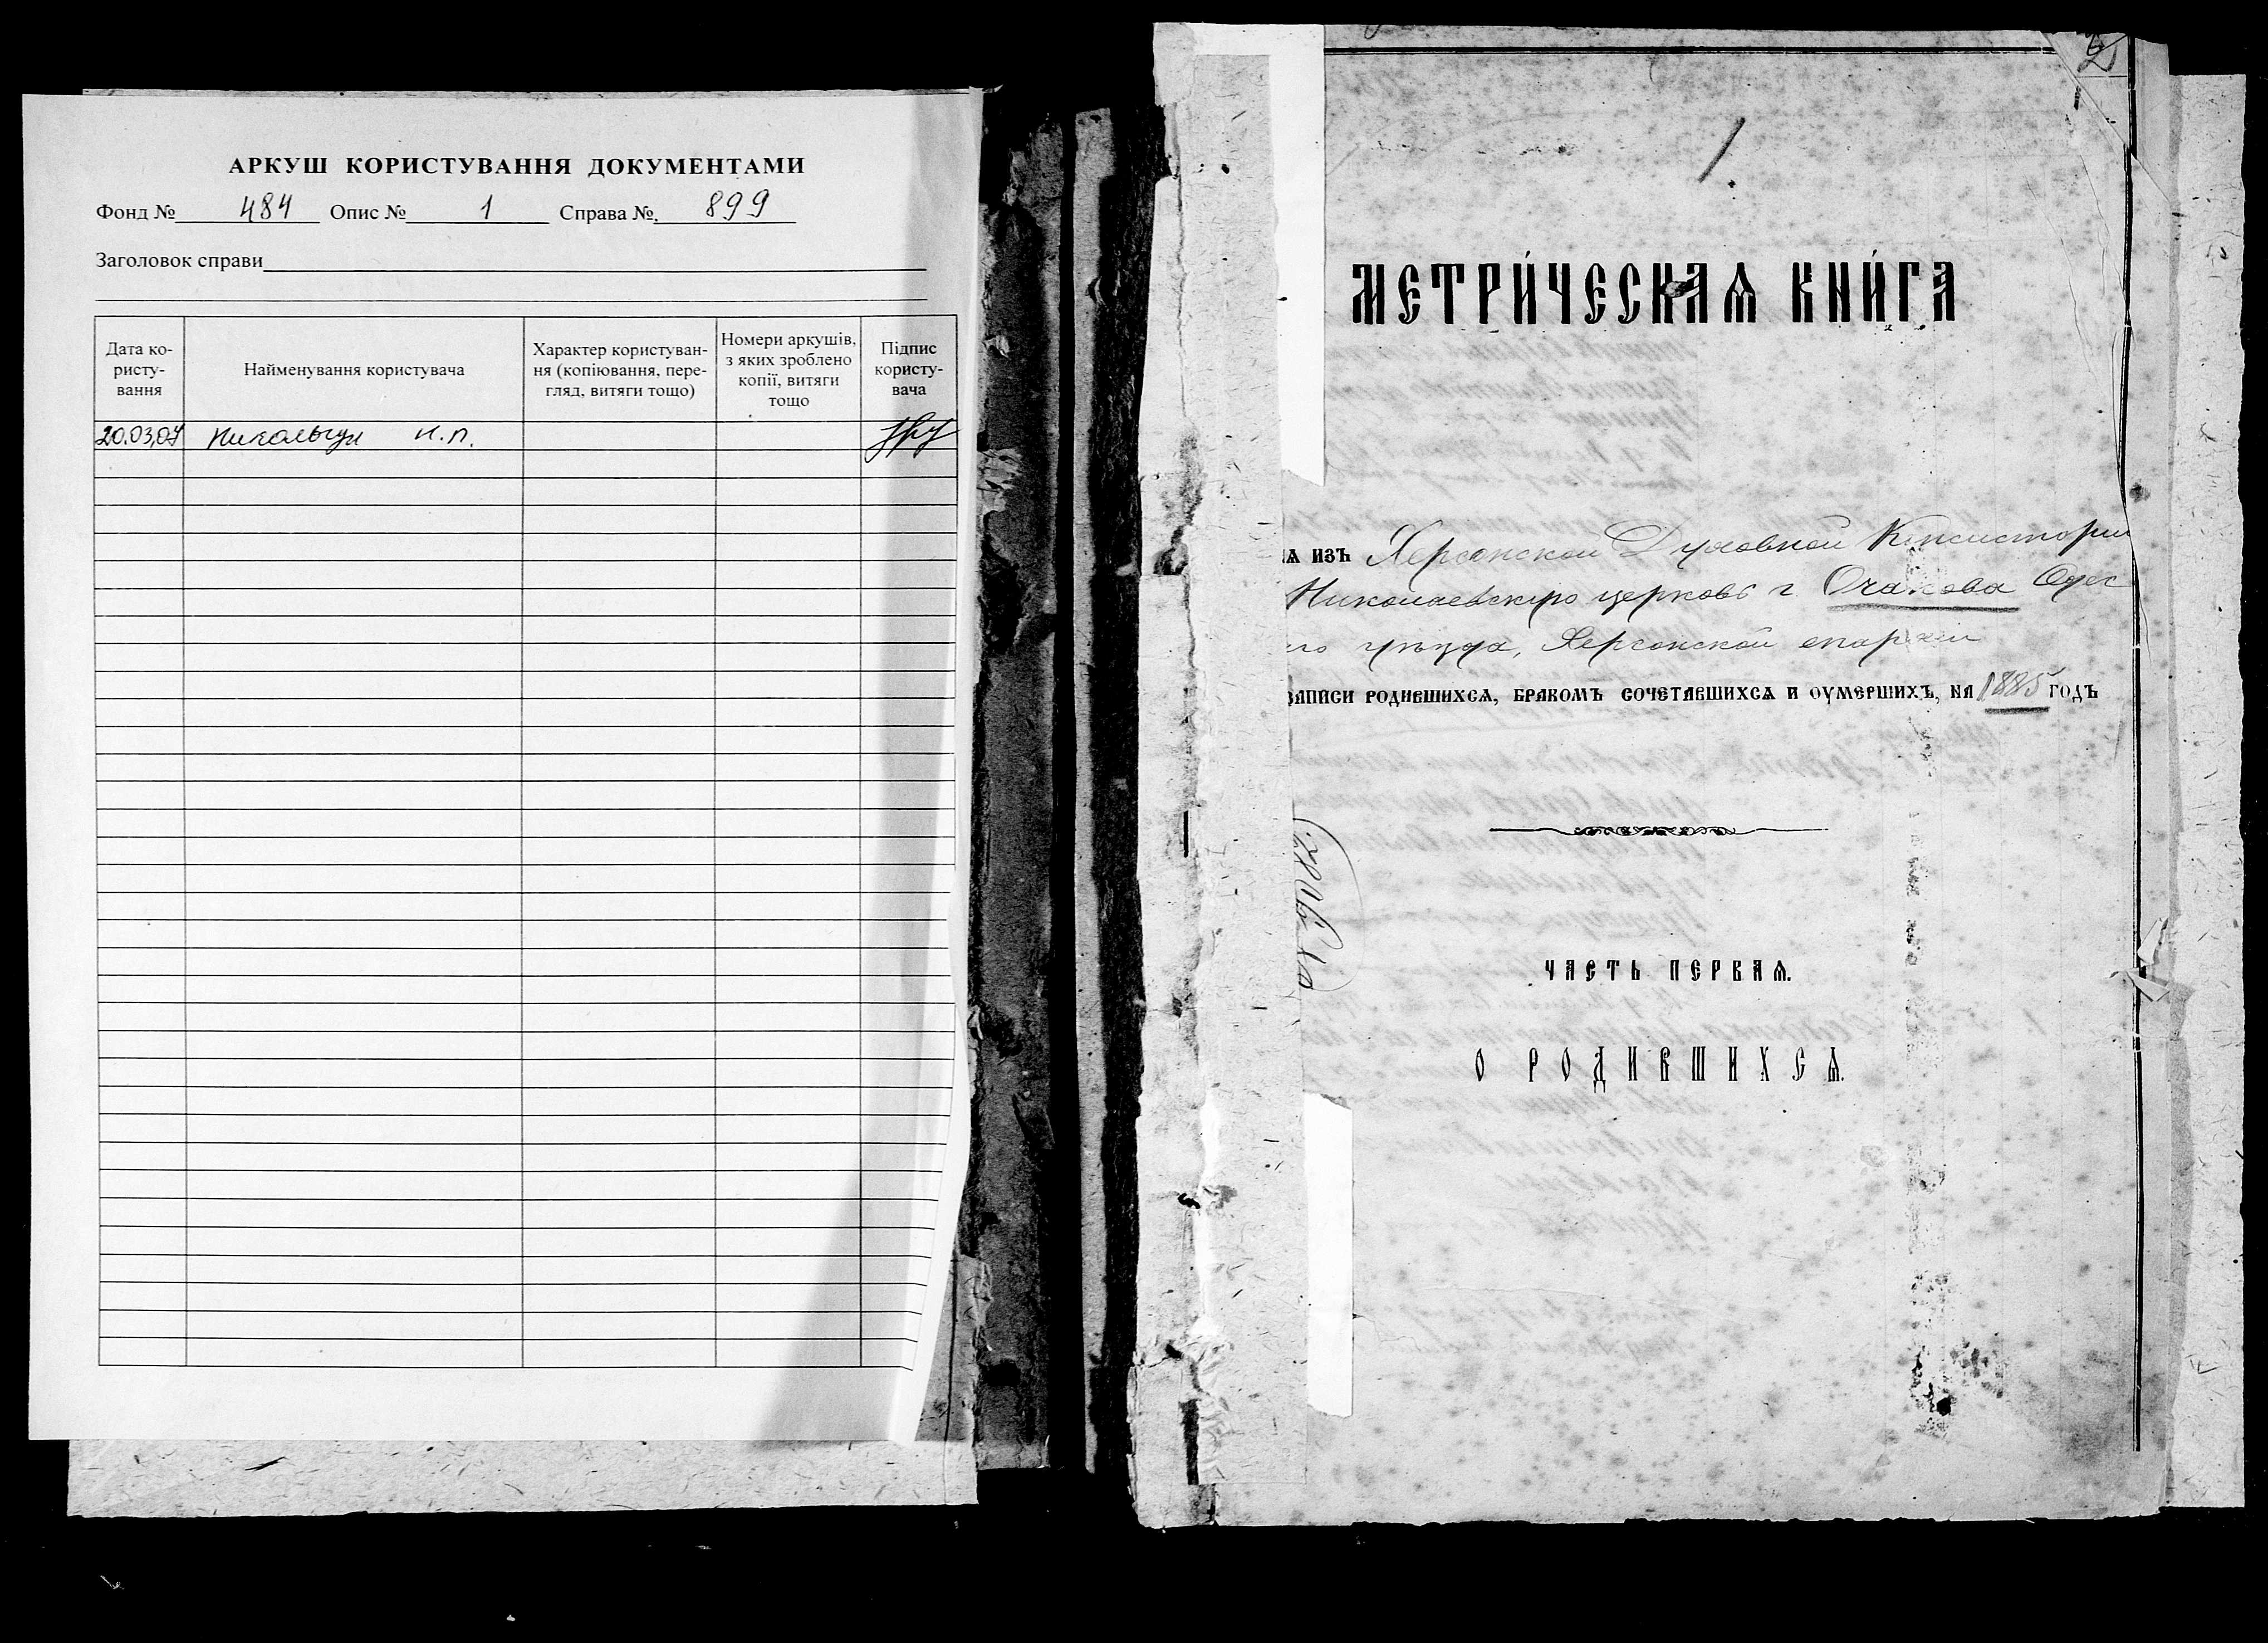 АРКУШ КОРИСТУВАННЯ ДОКУМЕНТАМИ
Фонд № 484 Опис № 1 Справа № 899
Заголовок справи
Дата ко-
ристу-
вання
Найменування користувача
Характер користуван-
ня (копіювання, пере-
гляд, витяги тощо)
Номери аркушів,
з яких зроблено
копії, витяги
тощо
Підпис
користу-
вача
20.03.07 Н.П.
1.
МЕТРИ́ЧЕСКАѦ КНИ́ГА
ѧ изъ Херсонской Духовной Консистории
Николаевскую церковь г. Очакова Одес
го уѣзда, Херсонской епархіи
записи родившихсѧ, бракомъ сочетавшихсѧ и оумершихъ, на 1885 годъ
ЧАСТЬ ПЕРВАѦ.
О РОДИВШИХСѦ.